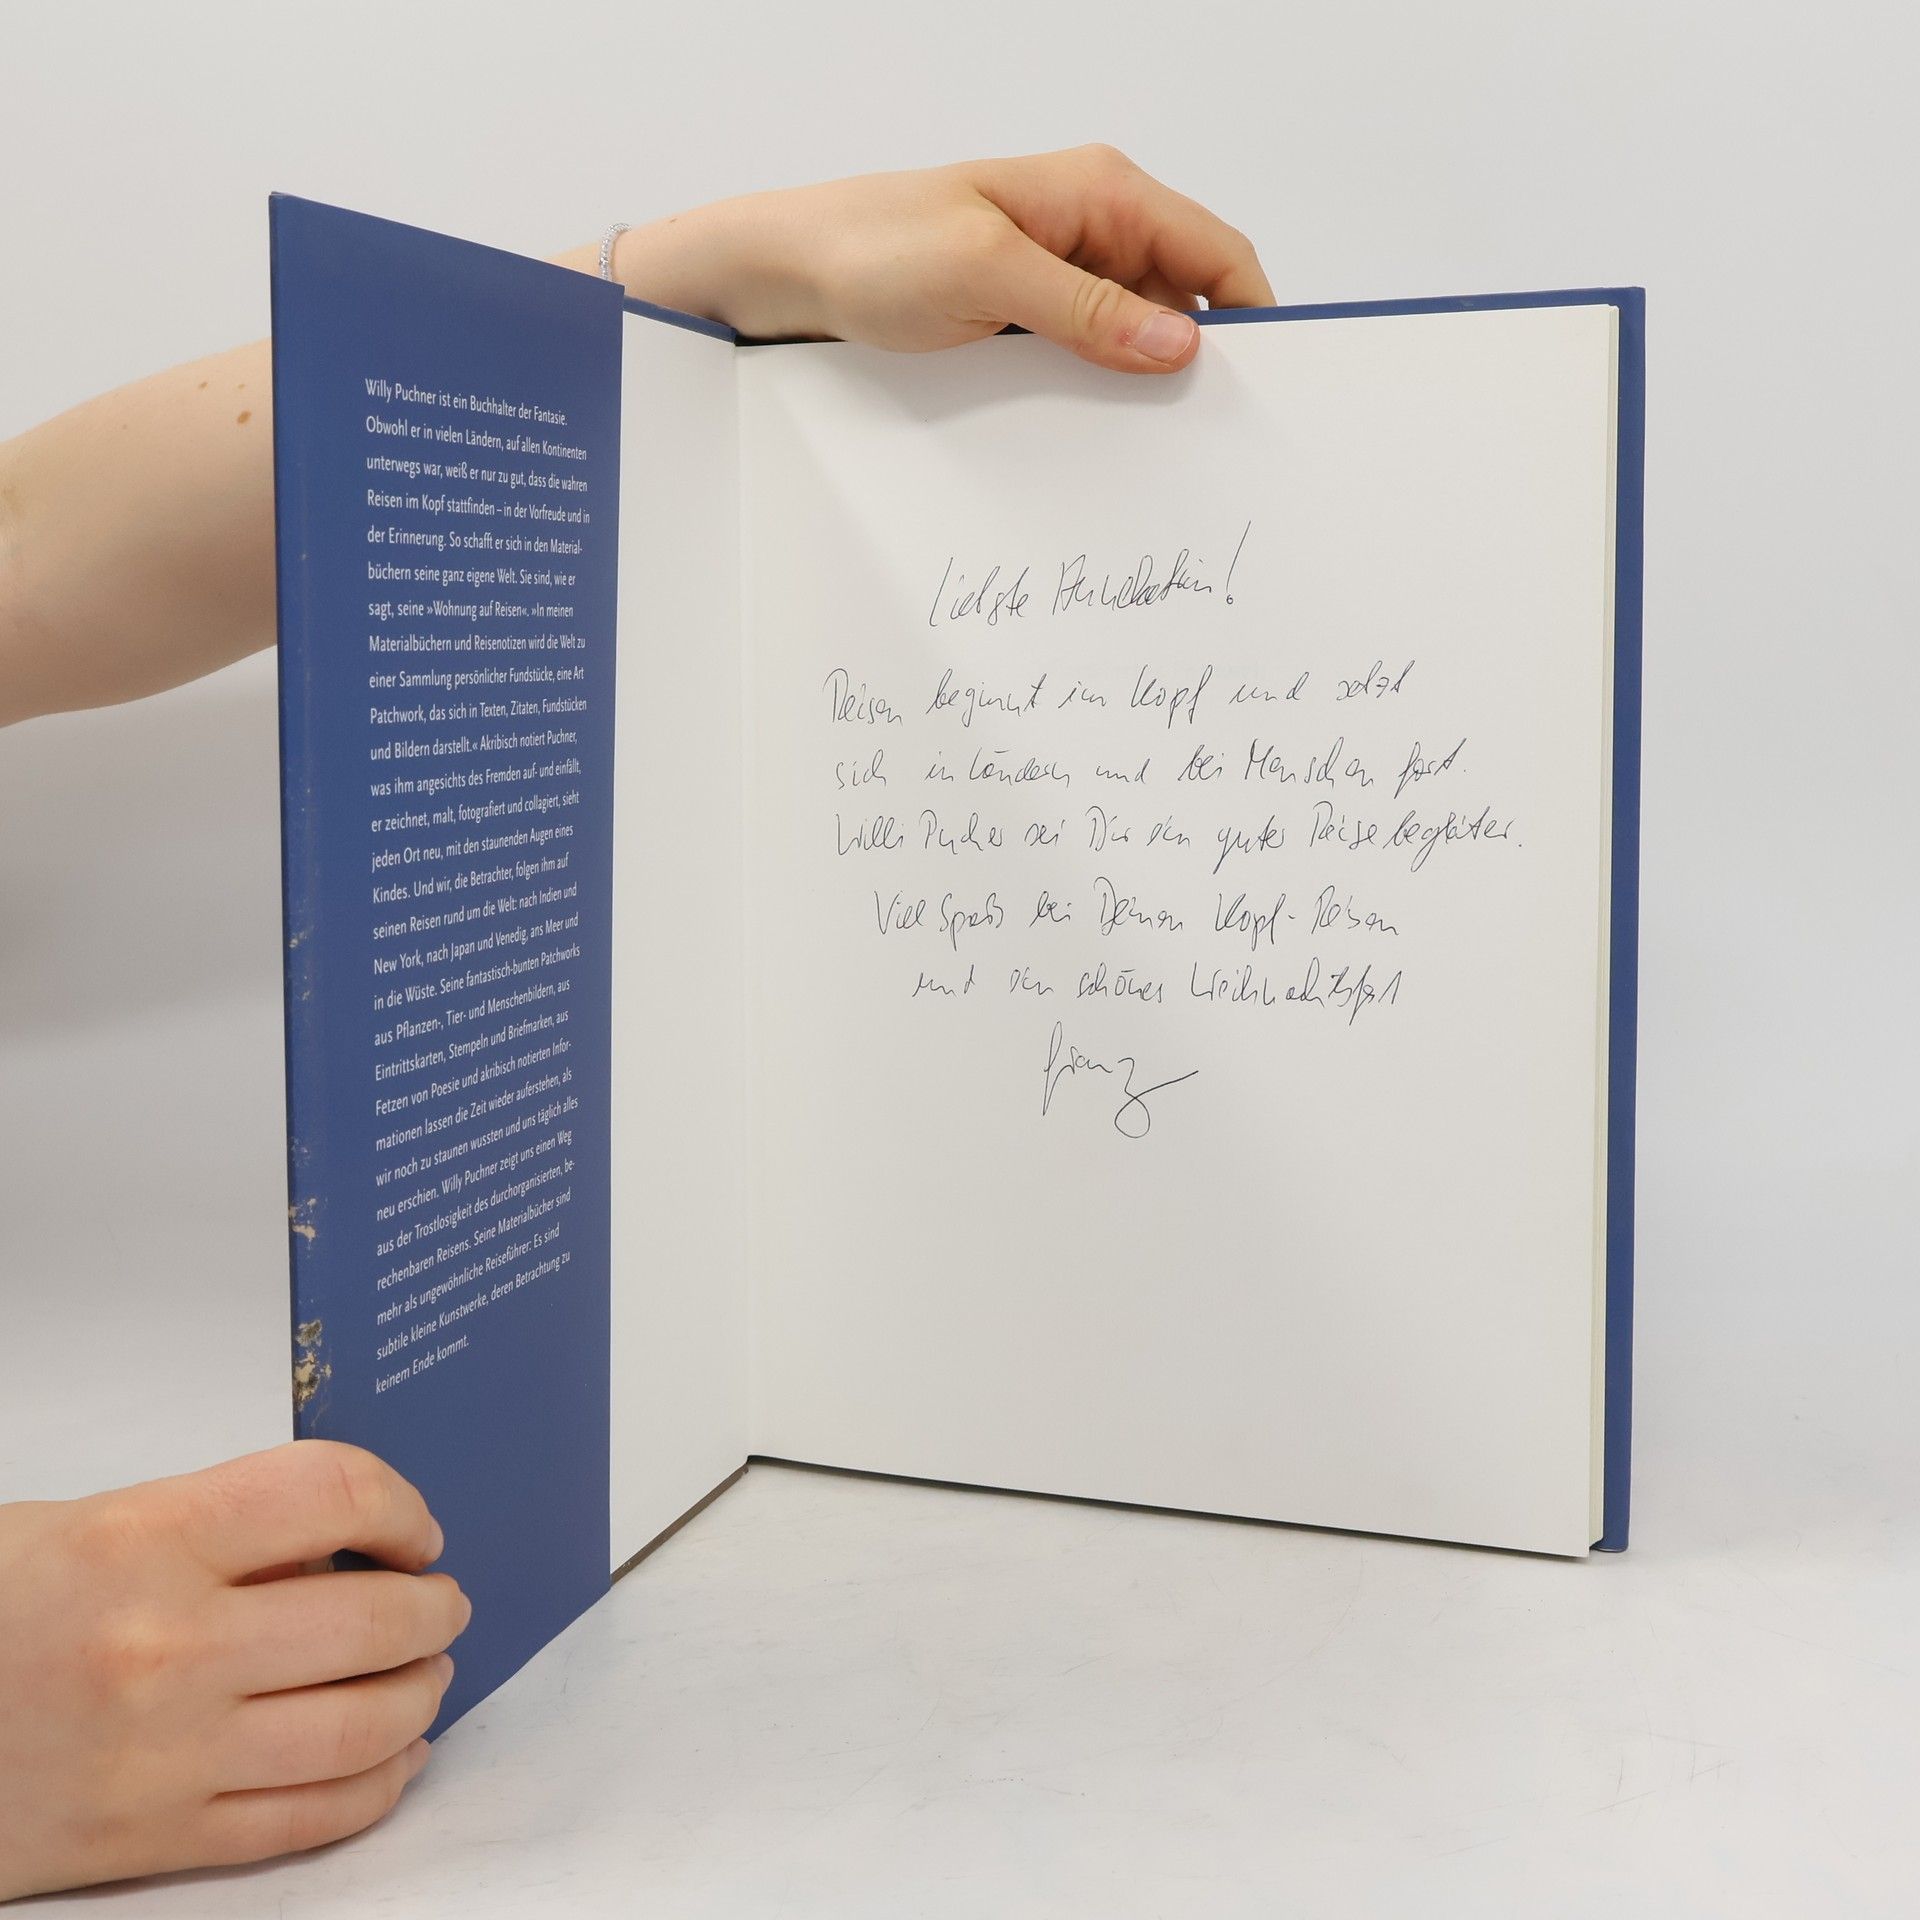 Willy Puchner ist ein Buchhalter der Fantasie.
Obwohl er in vielen Ländern, auf allen Kontinenten
unterwegs war, weiß er nur zu gut, dass die wahren
Reisen im Kopf stattfinden – in der Vorfreude und in
der Erinnerung. So schafft er sich in den Material-
büchern seine ganz eigene Welt. Sie sind, wie er
sagt, seine »Wohnung auf Reisen«. »In meinen
Materialbüchern und Reisenotizen wird die Welt zu
einer Sammlung persönlicher Fundstücke, eine Art
Patchwork, das sich in Texten, Zitaten, Fundstücken
und Bildern darstellt.« Akribisch notiert Puchner,
was ihm angesichts des Fremden auf- und einfällt,
er zeichnet, malt, fotografiert und collagiert, sieht
jeden Ort neu, mit den staunenden Augen eines
Kindes. Und wir, die Betrachter, folgen ihm auf
seinen Reisen rund um die Welt: nach Indien und
New York, nach Japan und Venedig, ans Meer und
in die Wüste. Seine fantastisch-bunten Patchworks
aus Pflanzen-, Tier- und Menschenbildern, aus
Eintrittskarten, Stempeln und Briefmarken, aus
Fetzen von Poesie und akribisch notierten Infor-
mationen lassen die Zeit wieder auferstehen, als
wir noch zu staunen wussten und uns täglich alles
neu erschien. Willy Puchner zeigt uns einen Weg
aus der Trostlosigkeit des durchorganisierten, be-
rechenbaren Reisens. Seine Materialbücher sind
mehr als ungewöhnliche Reiseführer: Es sind
subtile kleine Kunstwerke, deren Betrachtung zu
keinem Ende kommt.
Liebste
Reisen beginnt im Kopf und setzt
sich in Ländern und bei Menschen fort.
Willi Pucher sei Dir ein guter Reisebegleiter.
Viel Spaß bei Deinen Kopf-Reisen
und ein schönes Weihnachtsfest
Franz